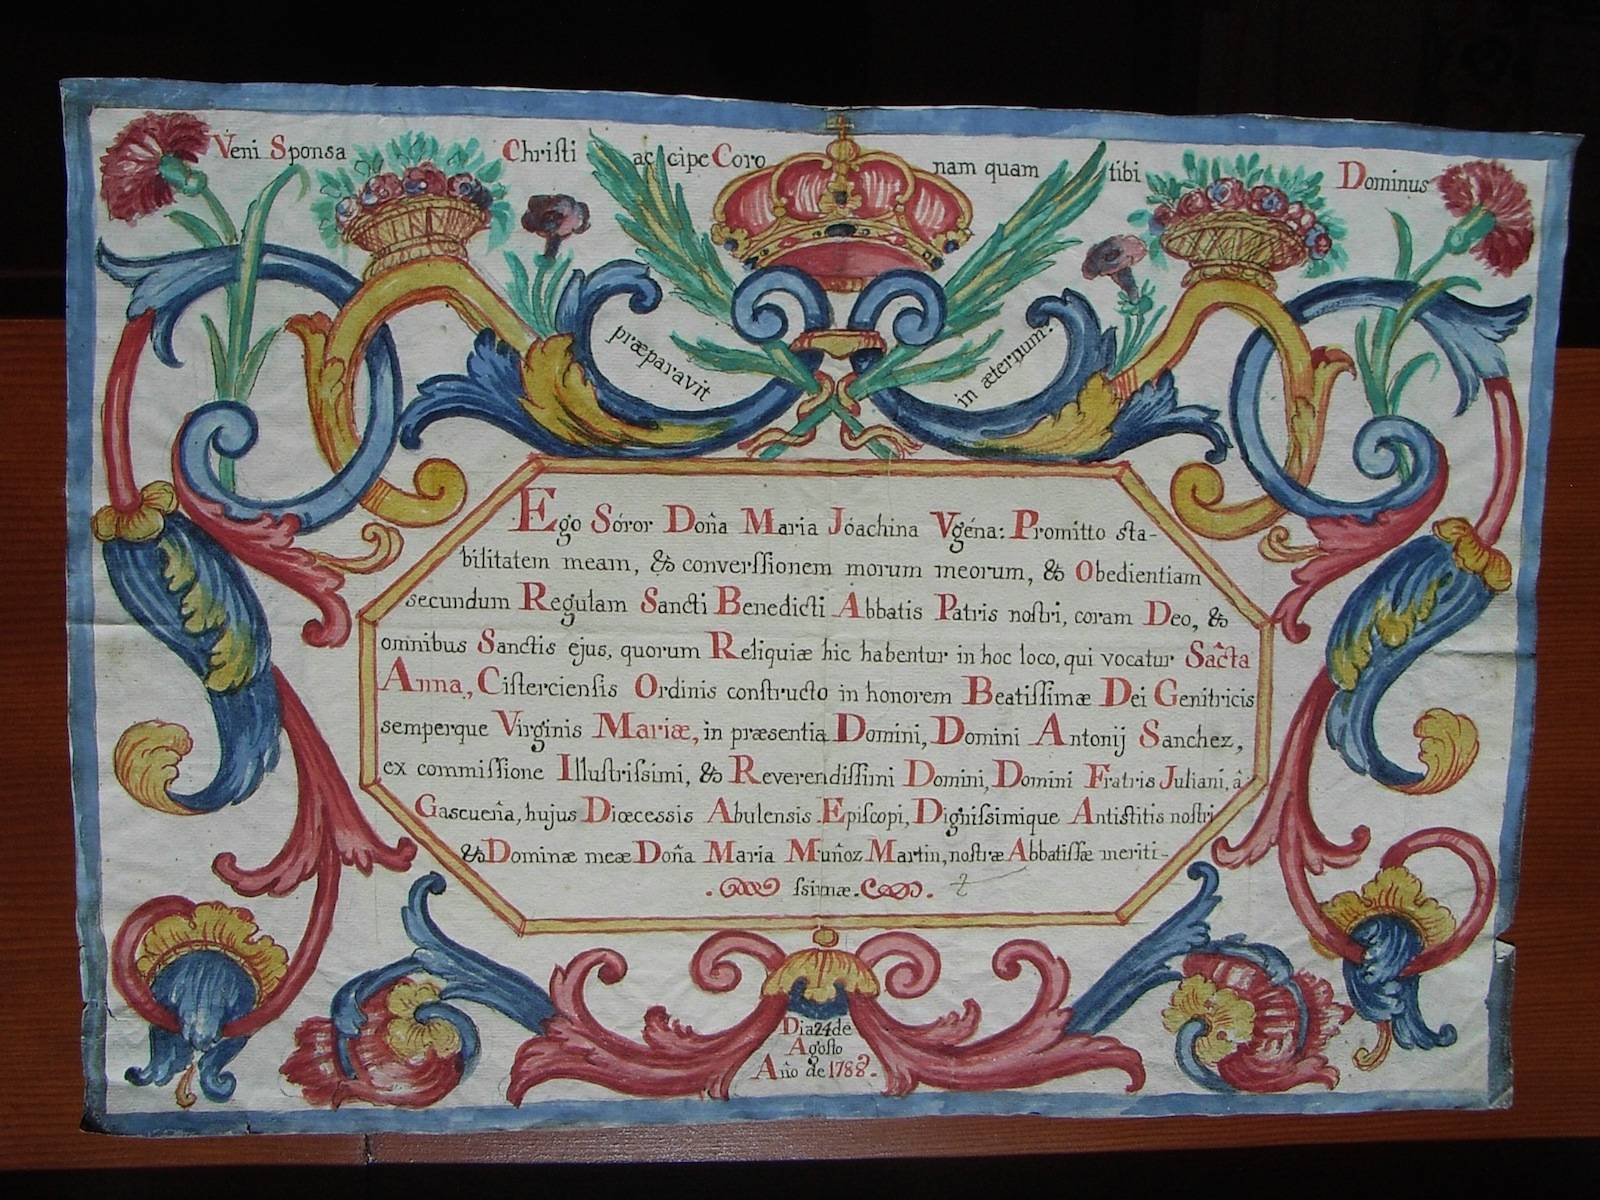 Veni Sponsa Christi accipe Coronam quam tibi Dominus
præparavit in æternum.
Ego Sóror Doña Maria Jóachina Vgéna: Promitto sta-
bilitatem meam, & converſſionem morum meorum, & Obedientiam
secundum Regulam Sancti Benedicti Abbatis Patris noſtri, coram Deo, &
omnibus Sanctis ejus, quorum Reliquiæ hic habentur in hoc loco, qui vocatur Sãcta
Anna, Ciſtercienſis Ordinis conſtructo in honorem Beatiſſimæ Dei Genitricis
semperque Virginis Mariæ, in præsentia Domini, Domini Antonij Sanchez,
ex commiſſione Illuſtriſsimi, & Reverendiſſimi Domini, Domini Fratris Juliani, â
Gascueña, hujus Diœcessis Abulensis Epiſcopi, Digniſsimique Antiſtitis noſtri
& Dominæ meæ Doña Maria Muñoz Martin, noſtræ Abbatiſſæ meriti-
ſsimæ.
Dia 24 de
Agoſto
Año de 1788.